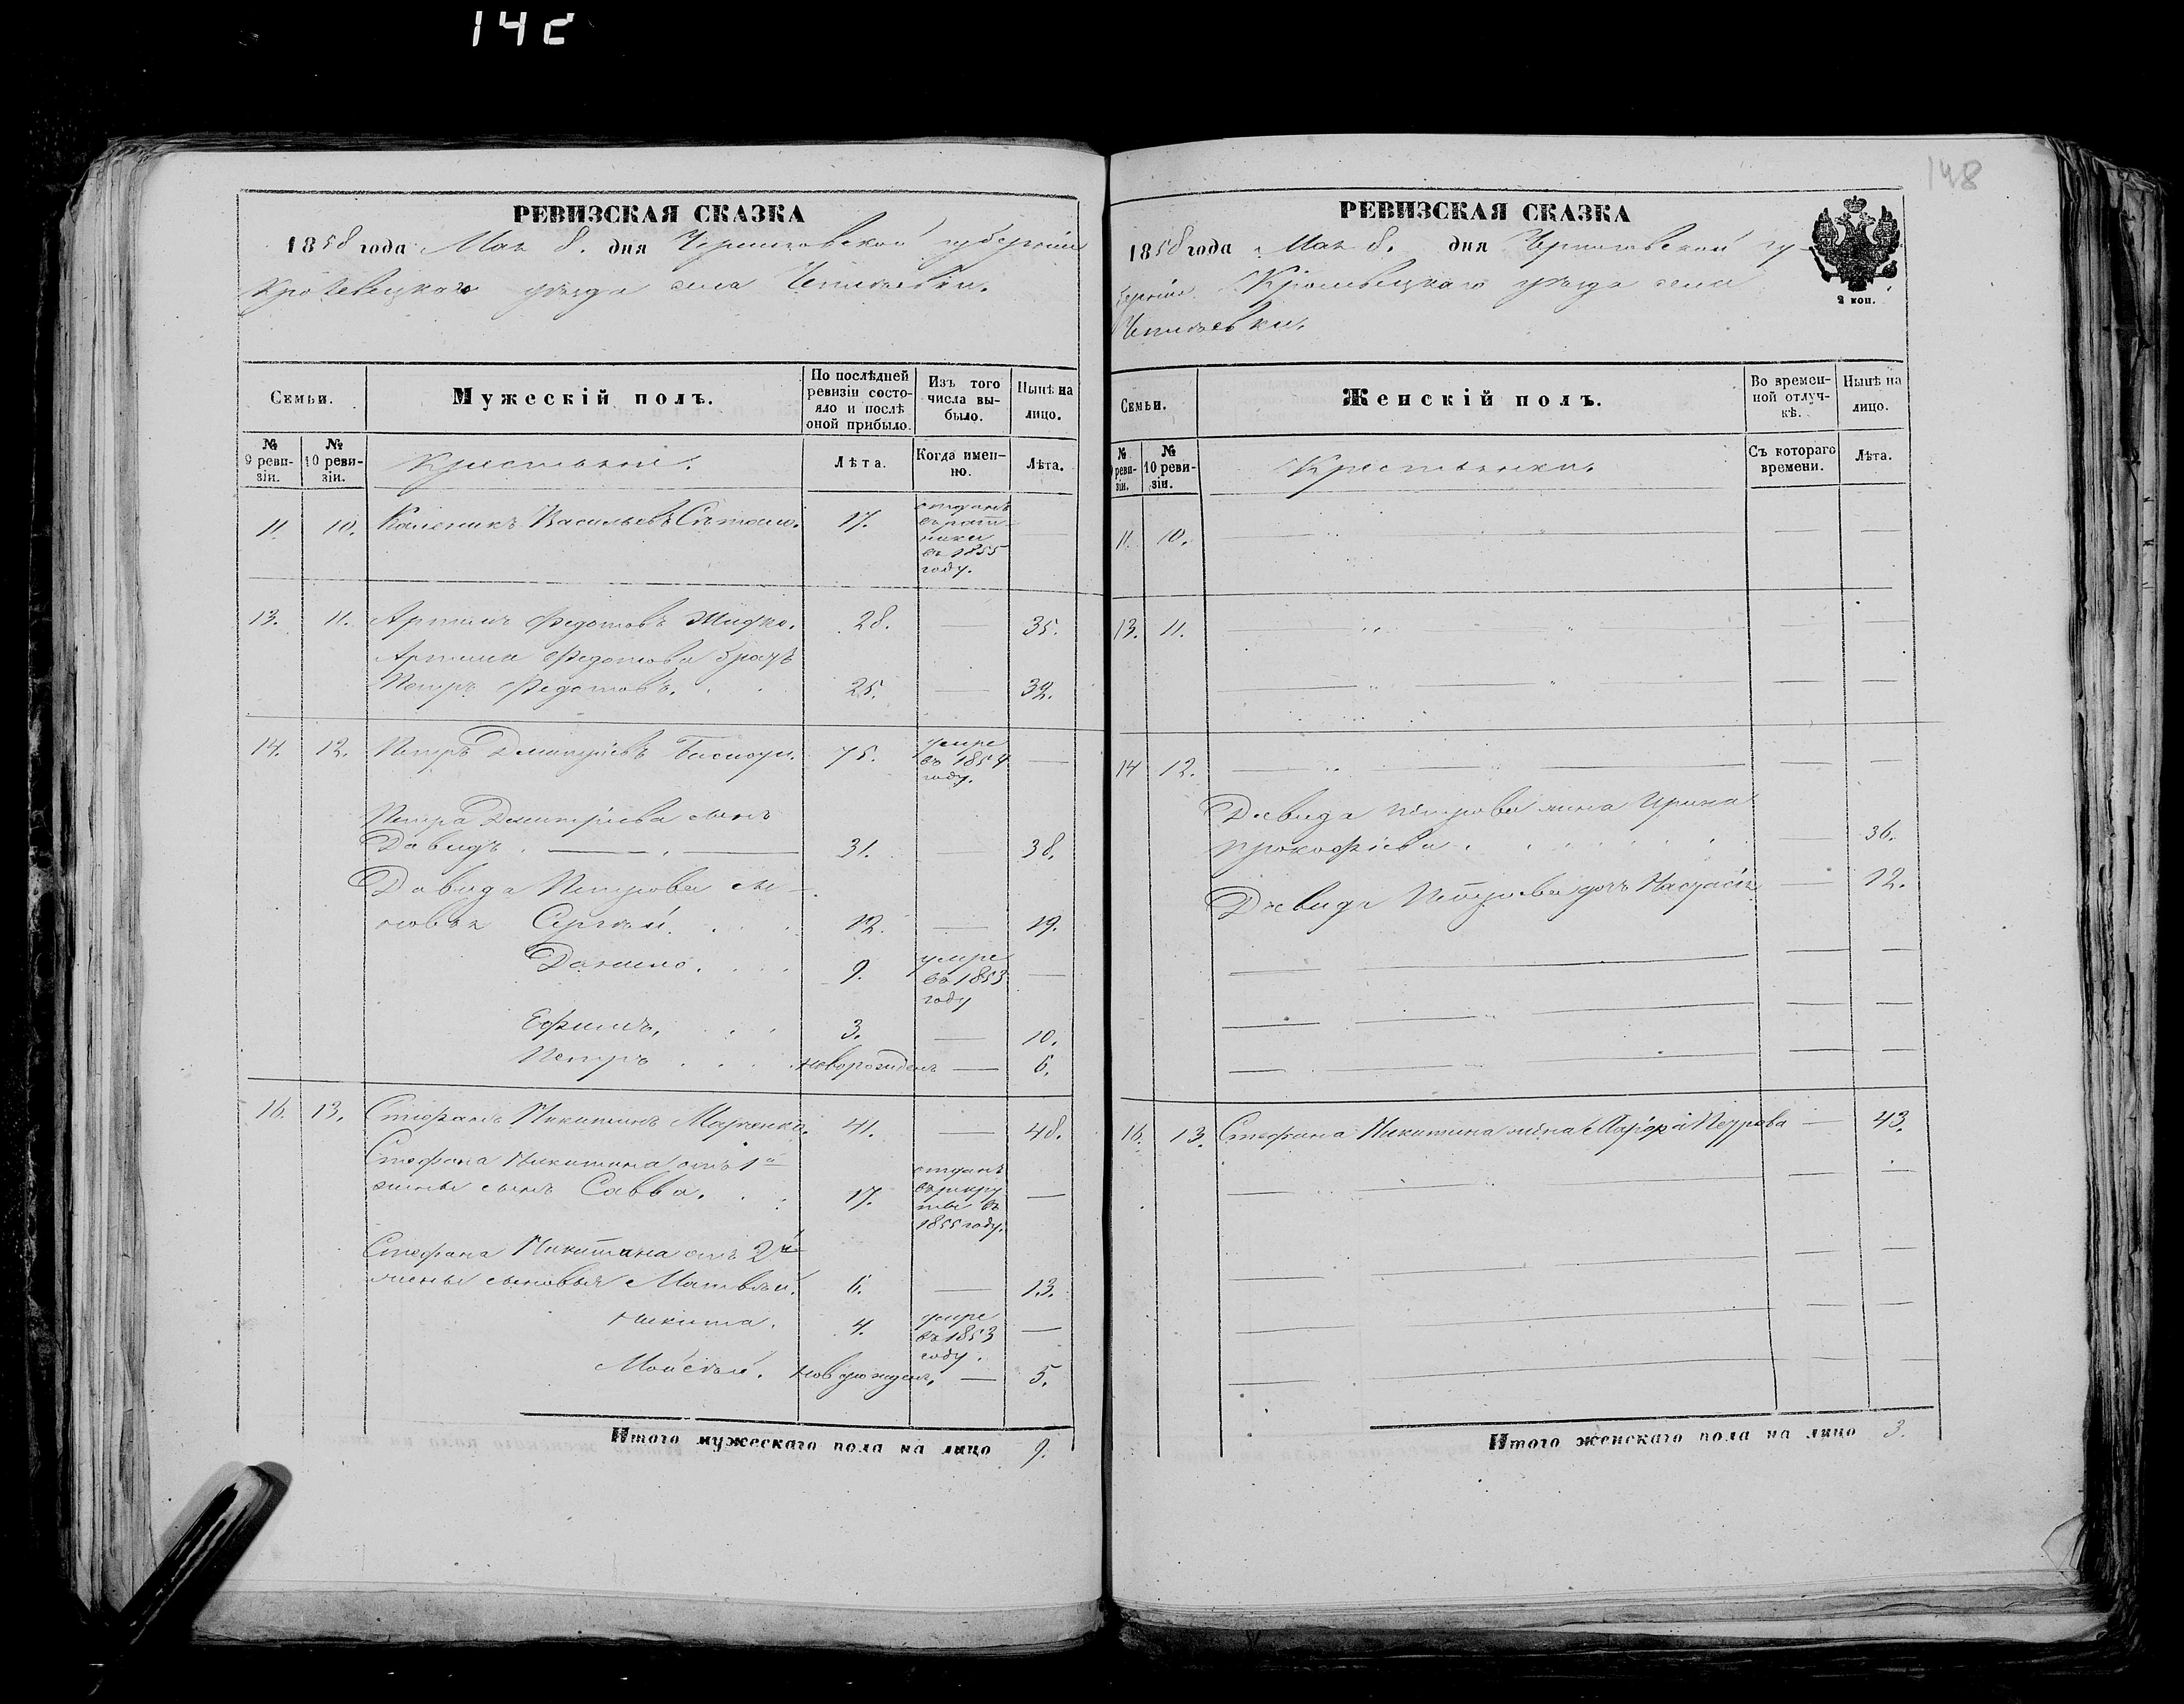 142
148
РЕВИЗСКАЯ СКАЗКА
1858 года Мая 8. дня Черниговской губерніи
Кролевецкаго уѣзда села Чепліевки.
Семьи.
Мужескій полъ.
По послѣдней ревизіи состояло и послѣ оной прибыло.
Изъ того числа выбыло.
Нынѣ на лицо.
№ 9 ревизіи.
№ 10 ревизіи.
Крестьяне.
Лѣта.
Когда именно.
Лѣта.
11. 10. Каленикъ Васильевъ 17. отданъ въ ратники въ 1855 году. —
13. 11. Артемъ Федотовъ 28. — 35.
Артема Федотова братъ
Петръ Федотовъ. 25. — 32.
14. 12. Петръ Дмитріевъ 75. умре въ 1854 году. —
Петра Дмитріева сынъ
Давидъ. 31. — 38.
Давида Петрова сы-
новья Сергѣй. 12. — 19.
Данило. 9. умре въ 1853 году —
Ефимъ. 3. — 10.
Петръ новорожденъ — 6.
16. 13. Стефанъ Никитинъ 41. — 48.
Стефана Никитина отъ 1й
жены сынъ Савва. 17. отданъ въ рекруты въ 1855 году. —
Стефана Никитина отъ 2й
жены сыновья Матвѣй. 6. — 13.
Никита. 4. умре въ 1853 году. —
Мойсѣй. новорожденъ. — 5.
Итого мужескаго пола на лицо 9.
РЕВИЗСКАЯ СКАЗКА
1858 года Мая 8. дня Черниговской гу-
берніи Кролевецкаго уѣзда села
Чепліевки.
2 коп.
Семьи.
Женскій полъ.
Во временной отлучкѣ.
Нынѣ на лицо.
№ ревизіи.
№ 10 ревизіи.
Крестьянки.
Съ котораго времени.
Лѣта.
11. 10.
13. 11.
14 12.
Давида Петрова жена Ирина
Прокофіева. — 36.
Давида Петрова дочь Настасія — 12.
16. 13. Стефана Никитина жена Марфа Петрова — 43.
Итого женскаго пола на лицо 3.